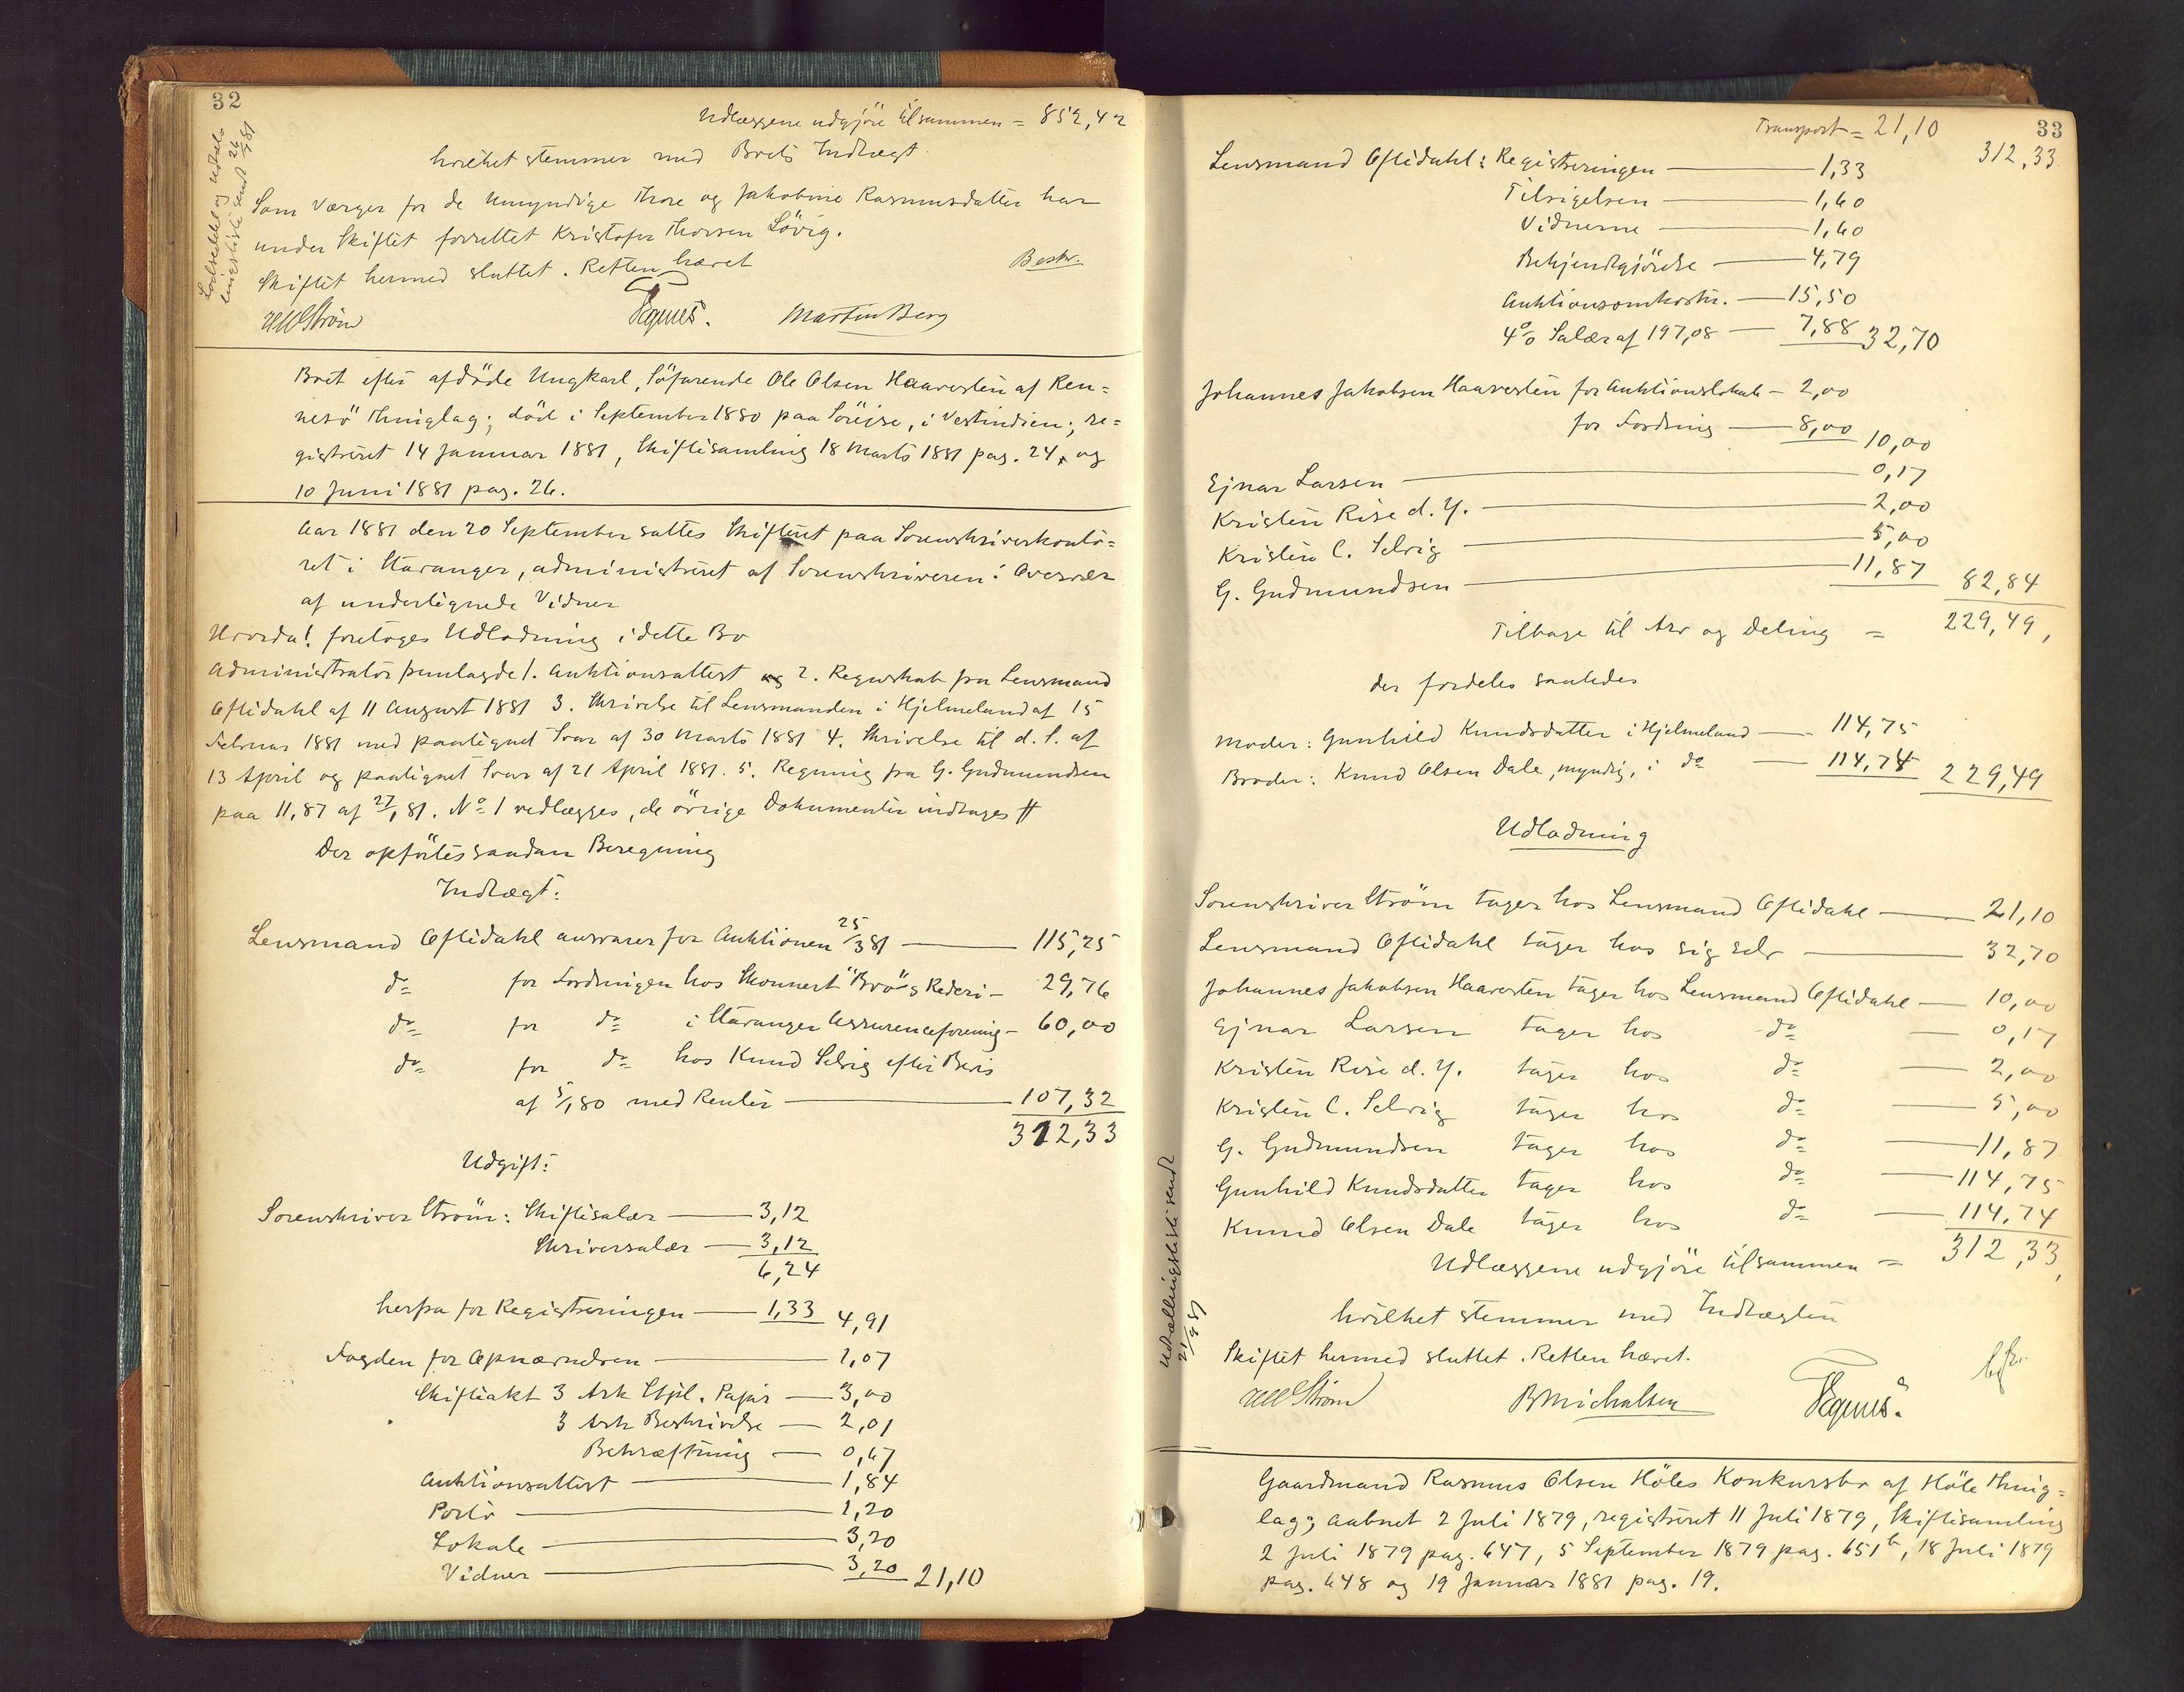 32
Udlæggene udgjöre tilsammen = 852,42
hvilket stemmer med Boets Indtægt.
Som Værger for de umyndige Thore og Jakobine Rasmusdatter har
under Skiftet forrettet Kristofer Thorsen Lövig.
Skiftet hermed sluttet. Retten hævet
Beskr.
Martin Berg
Boet efter afdöde Ungkarl, Söfarende Ole Olsen Haavesten af Ren=
nesö Thinglag; död i September 1880 paa Söreise, i Vestindien; re=
gistreret 14 Januar 1881, Skiftesamling 18 Marts 1881 pag. 24, og
10 Juni 1881 pag. 26.
Aar 1881 den 20 September sattes Skifteret paa Sorenskriverkontö=
ret i Stavanger, administreret af Sorenskriveren i Overvær
af undertegnede Vidner
Hvorda! foretoges Udlodning i dette Bo
Administrator fremlagde 1. Auktionsattest og 2. Regnskab fra Lensmand
Oftedahl af 11 August 1881 3. Skrivelse til Lensmanden i Hjelmeland af 15
Februar 1881 med paategnet Svar af 30 Marts 1881 4. Skrivelse til d. S. af
13 April og paategnet Svar af 21 April 1881. 5. Regning fra G. Gudmundsen
paa 11,87 af 27/1 81. No 1 vedlægges, de övrige Dokumenter indtages #
Der opförtes saadan Beregning
Indtægt:
Lensmand Oftedahl ansvarer for Auktionen 25/3 81 — 115,25
do for Fordringen hos Skonnert "Brö"s Rederi — 29,76
do for do i Stavanger Assuranceforening — 60,00
do for do hos Knud Selvig efter Bevis
af 5/1 80 med Renter — 107,32
312,33
Udgift:
Sorenskriver Ström: Skiftesalær — 3,12
Skriversalær — 3,12
6,24
herfra for Registreringen — 1,33 4,91
Fogden for Opnævnelsen — 1,07
Skifteakt 3 Ark Stpl. Papir — 3,00
3 Ark Beskrivelse — 2,01
Bekræftning — 0,67
Auktionsattest — 1,84
Porto — 1,20
Lokale — 3,20
Vidner — 3,20 21,10
33
Transport = 21,10
312,33
Lensmand Oftedahl: Registreringen — 1,33
Tilsigelsen — 1,60
Vidnerne — 1,60
Bekjendtgjörelse — 4,79
Auktionsomkostn. — 15,50
4% Salær af 197,08 — 7,88 32,70
Johannes Jakobsen Haavesten for Auktionslokale — 2,00
for Fordring — 8,00 10,00
Ejnar Larsen — 0,17
Kristen Rise d. Y. — 2,00
Kristen C. Selvig — 5,00
G. Gudmundsen — 11,87 82,84
Tilbage til Arv og Deling = 229,49,
der fordeles saaledes
Moder: Gunhild Knudsdatter i Hjelmeland — 114,75
Broder: Knud Olsen Dale, myndig, i do — 114,74 229,49
Udlodning
Sorenskriver Ström tager hos Lensmand Oftedahl — 21,10
Lensmand Oftedahl tager hos sig selv — 32,70
Johannes Jakobsen Haavesten tager hos Lensmand Oftedahl — 10,00
Ejnar Larsen tager hos do — 0,17
Kristen Rise d. Y. tager hos do — 2,00
Kristen C. Selvig tager hos do — 5,00
G. Gudmundsen tager hos do — 11,87
Gunhild Knudsdatter tager hos do — 114,75
Knud Olsen Dale tager hos do — 114,74
Udlæggene udgjöre tilsammen = 312,33,
hvilket stemmer med Indtægten
Skiftet hermed sluttet. Retten hævet.
B Michalsen
Udtællingsliste sendt
21/9 81
Gaardmand Rasmus Olsen Höles Konkursbo af Höle Thing=
lag; aabnet 2 Juli 1879, registreret 11 Juli 1879, Skiftesamling
2 Juli 1879 pag. 647, 5 September 1879 pag. 651 b, 18 Juli 1879
pag. 648 og 19 Januar 1881 pag. 19.